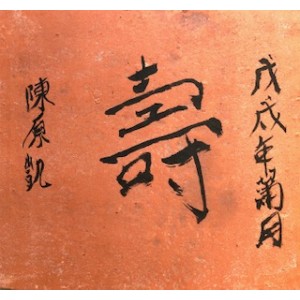 戊戌年菊月
壽
陳原凱